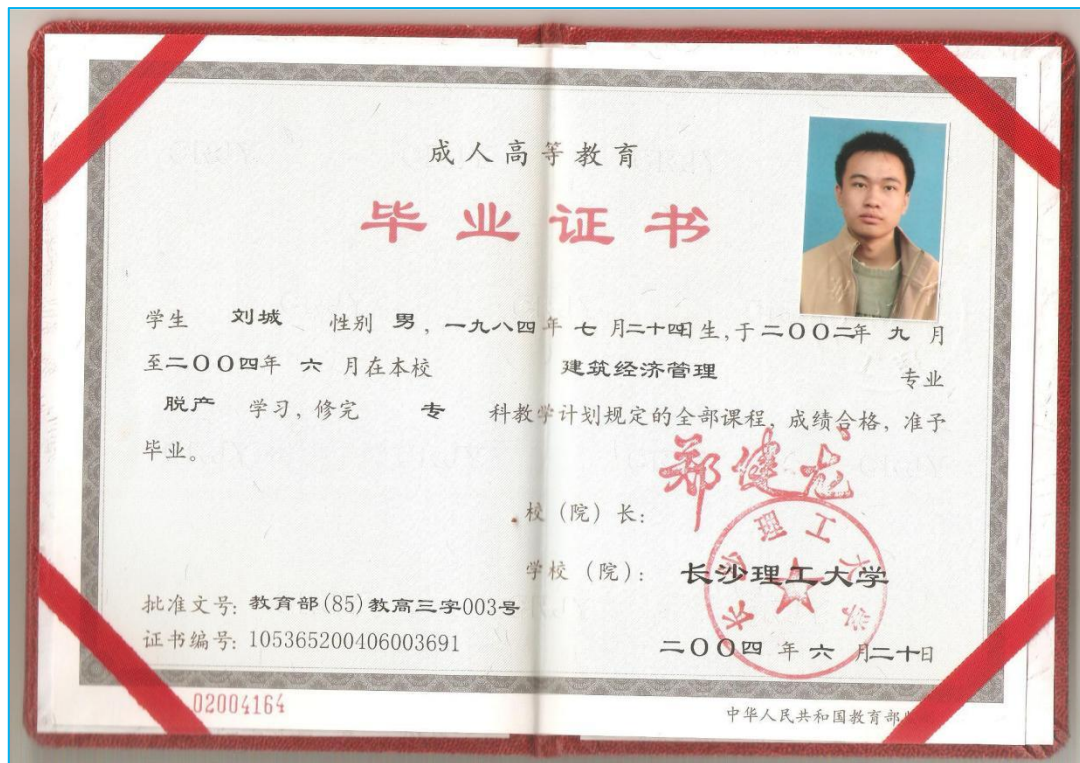 成人高等教育
毕业证书
学生 刘城 性别 男，一九八四年 七 月二十四日生,于二〇〇二年 九 月
至二〇〇四年 六 月在本校 建筑经济管理 专业
脱产 学习，修完 专 科教学计划规定的全部课程，成绩合格，准予
毕业。
郑健龙
校（院）长：
学校（院）：长沙理工大学
长沙理工大学
批准文号: 教育部(85)教高三字003号
证书编号: 105365200406003691
二〇〇四 年 六 月二十日
02004164
中华人民共和国教育部